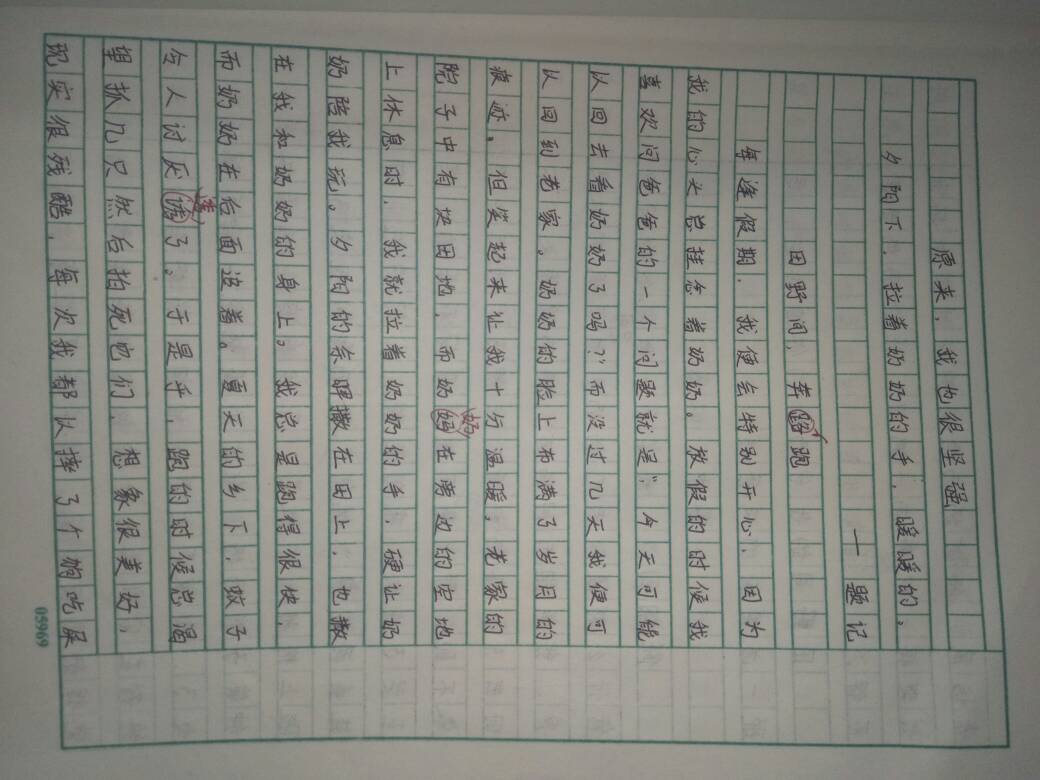 原来，我也很坚强
夕阳下，拉着奶奶的手，暖暖的。
一题记
田野间，奔跑
每逢假期，我便会特别开心，因为
我的心头总挂念着奶奶。放假的时候我
喜欢问爸爸的一个问题就是：“今天可能
以回去看奶奶了吗？”而没过几天我便可
以回到老家。奶奶的脸上布满了岁月的
痕迹。但笑起来让我十分温暖。老家的
院子中有块田地，而奶奶在旁边的空地
上休息时，我就拉着奶奶的手，硬让奶
奶陪我玩。夕阳的余晖撒在田上，也撒
在我和奶奶的身上。我总是跑得很快，
而奶奶在后面追着。夏天的乡下，蚊子
令人讨厌了。于是乎，跑的时候总渴
望抓几只然后拍死它们，想象很美好，
现实很残酷，每次我都以摔了个狗吃屎
05969